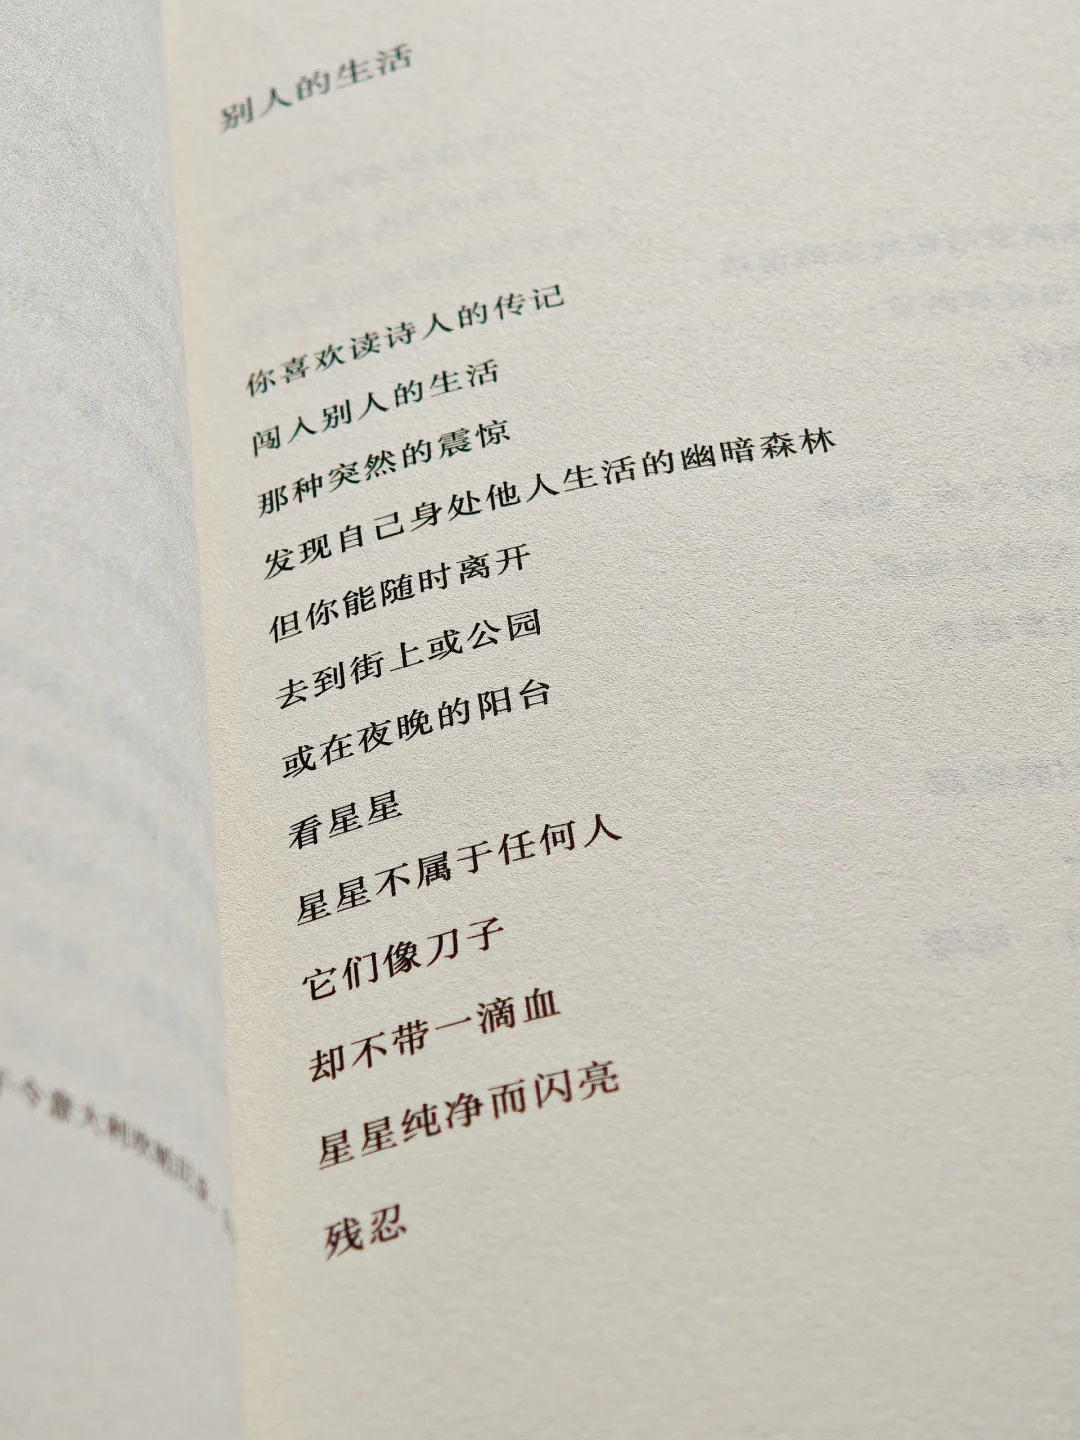 别人的生活
你喜欢读诗人的传记
闯入别人的生活
那种突然的震惊
发现自己身处他人生活的幽暗森林
但你能随时离开
去到街上或公园
或在夜晚的阳台
看星星
星星不属于任何人
它们像刀子
却不带一滴血
星星纯净而闪亮
残忍